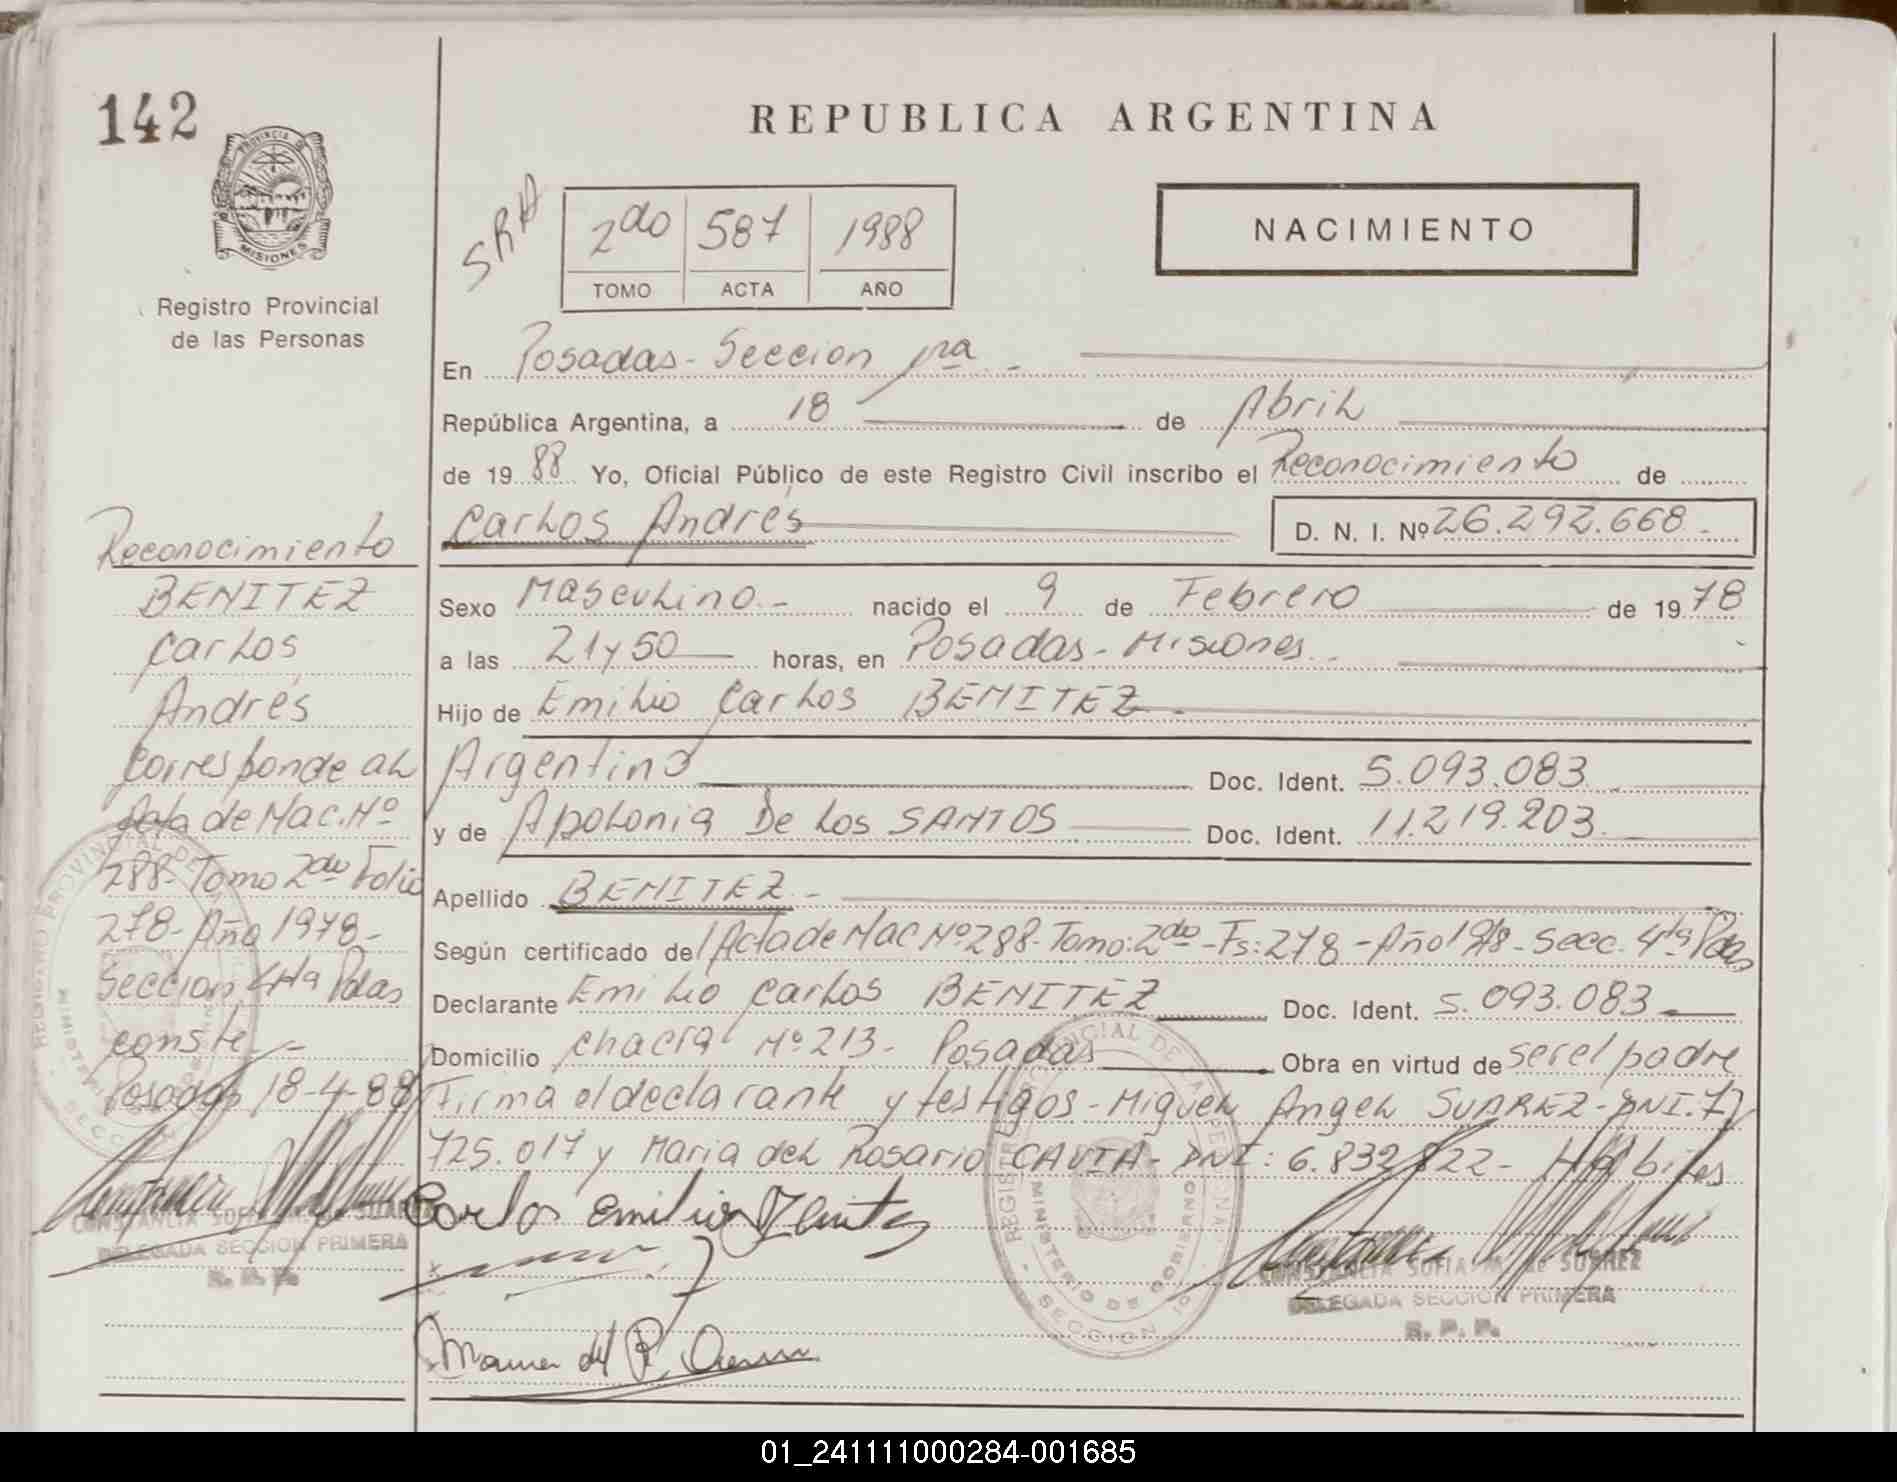 142
REPUBLICA ARGENTINA
PROVINCIA DE
MISIONES
Registro Provincial
de las Personas
SRA
2do 587 1988
TOMO ACTA AÑO
NACIMIENTO
En Posadas - Seccion 1ra -
República Argentina, a 18 de Abril
de 1988 Yo, Oficial Público de este Registro Civil inscribo el Reconocimiento de
Carlos Andrés D. N. I. Nº 26.292.668.-
Sexo Masculino.- nacido el 9 de Febrero de 1978
a las 21 y 50 horas, en Posadas - Misiones.-
Hijo de Emilio Carlos BENITEZ.-
Argentino Doc. Ident. 5.093.083
y de Apolonia De Los SANTOS Doc. Ident. 11.219.203.
Apellido BENITEZ.-
Según certificado del Acta de Nac Nº 288- Tomo: 2do - Fs: 278 - Año 1978 - Secc. 4ta Pdas
Declarante Emilio Carlos BENITEZ Doc. Ident. 5.093.083
Domicilio Chacra Nº 213- Posadas Obra en virtud de ser el padre
Firma el declarante y testigos - Miguel Angel SUAREZ - DNI. 7.
725.017 y Maria del Rosario CAVIA - DNI: 6.832.822- Hábiles
Reconocimiento
BENITEZ
Carlos
Andrés
Corresponde al
Acta de Nac. Nº
288- Tomo 2do Folio
278- Año 1978-
Seccion 4ta Pdas
conste.-
Posadas 18-4-88
CONSTANCIA SOFIA M. de SUAREZ
DELEGADA SECCION PRIMERA
R. P. P.
Carlos Emilio Benitez
CONSTANCIA SOFIA M. de SUAREZ
DELEGADA SECCION PRIMERA
R. P. P.
REGISTRO PROVINCIAL DE LAS PERSONAS
MINISTERIO DE GOBIERNO
SECCION 1o
01_241111000284-001685